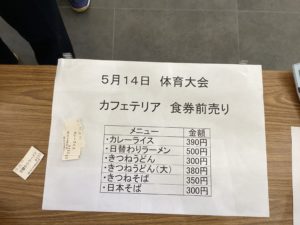 5月14日 体育大会
カフェテリア 食券前売り
メニュー 金額
・カレーライス 390円
・日替わりラーメン 500円
・きつねうどん 300円
・きつねうどん(大) 380円
・きつねそば 350円
・日本そば 300円